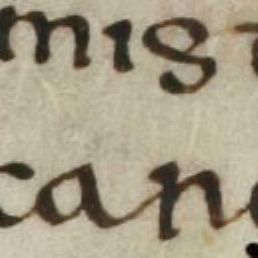 mis
can